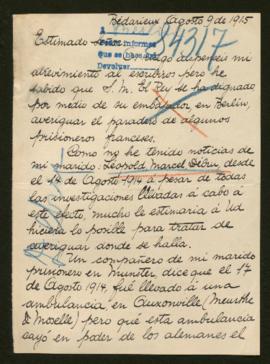 Bédarieux Agosto 9 de 1915
Estimado señor
informes
que se
Devolver
84317
Le ruego dispense mi
atrevimiento al escribiros pero he
sabido que S. M. El Rey se ha dignado
por medio de su embajador en Berlin,
averiguar el paradero de algunos
prisioneros franceses.
Como no he tenido noticias de
mi marido Léopold Marcel desde
el 14 de Agosto 1914 á pesar de todas
las investigaciones llevadas á cabo á
este efecto, mucho le estimaria á Ud
hiciera lo posible para tratar de
averiguar donde se halla.
Un compañero de mi marido
prisionero en Munster, dice que el 17
de Agosto 1914, fué llevado á una
ambulancia en (Meurthe
& Moselle) pero que esta ambulancia
cayó en poder de los alemanes el